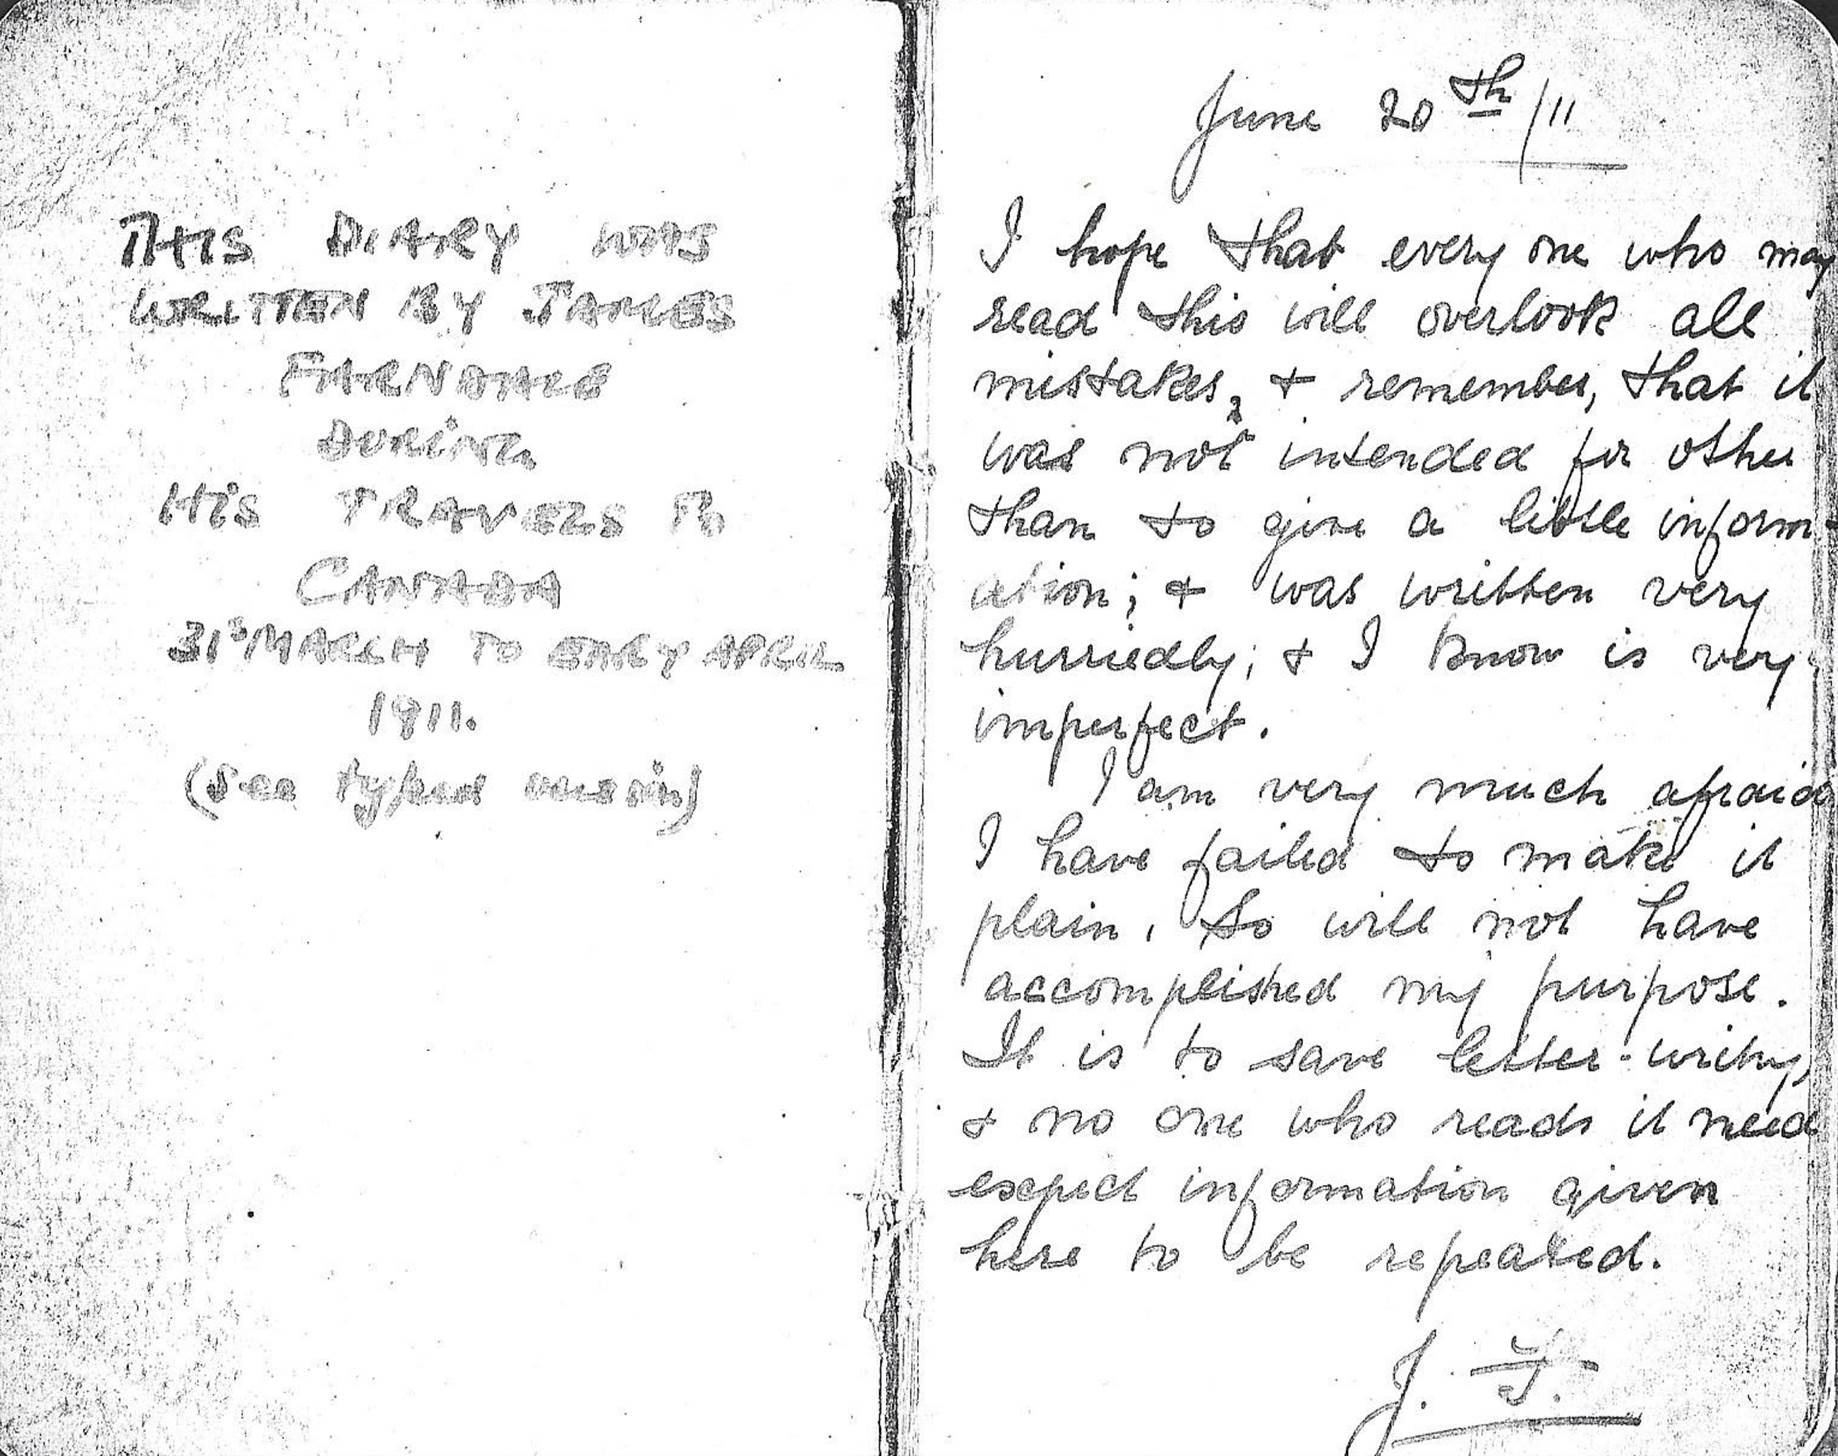 THIS DIARY WAS
WRITTEN BY JAMES
FARNDALE
DURING
HIS TRAVELS TO
CANADA
31st MARCH TO EARLY APRIL
1911.
(See typed version)
June 20th/11
I hope that every one who may
read this will overlook all
mistakes, & remember, that it
was not intended for other
than to give a little inform-
ation; & was written very
hurriedly; & I know is very
imperfect.
I am very much afraid
I have failed to make it
plain, so will not have
accomplished my purpose.
It is to save letter-writing,
& no one who reads it need
expect information given
here to be repeated.
J. F.